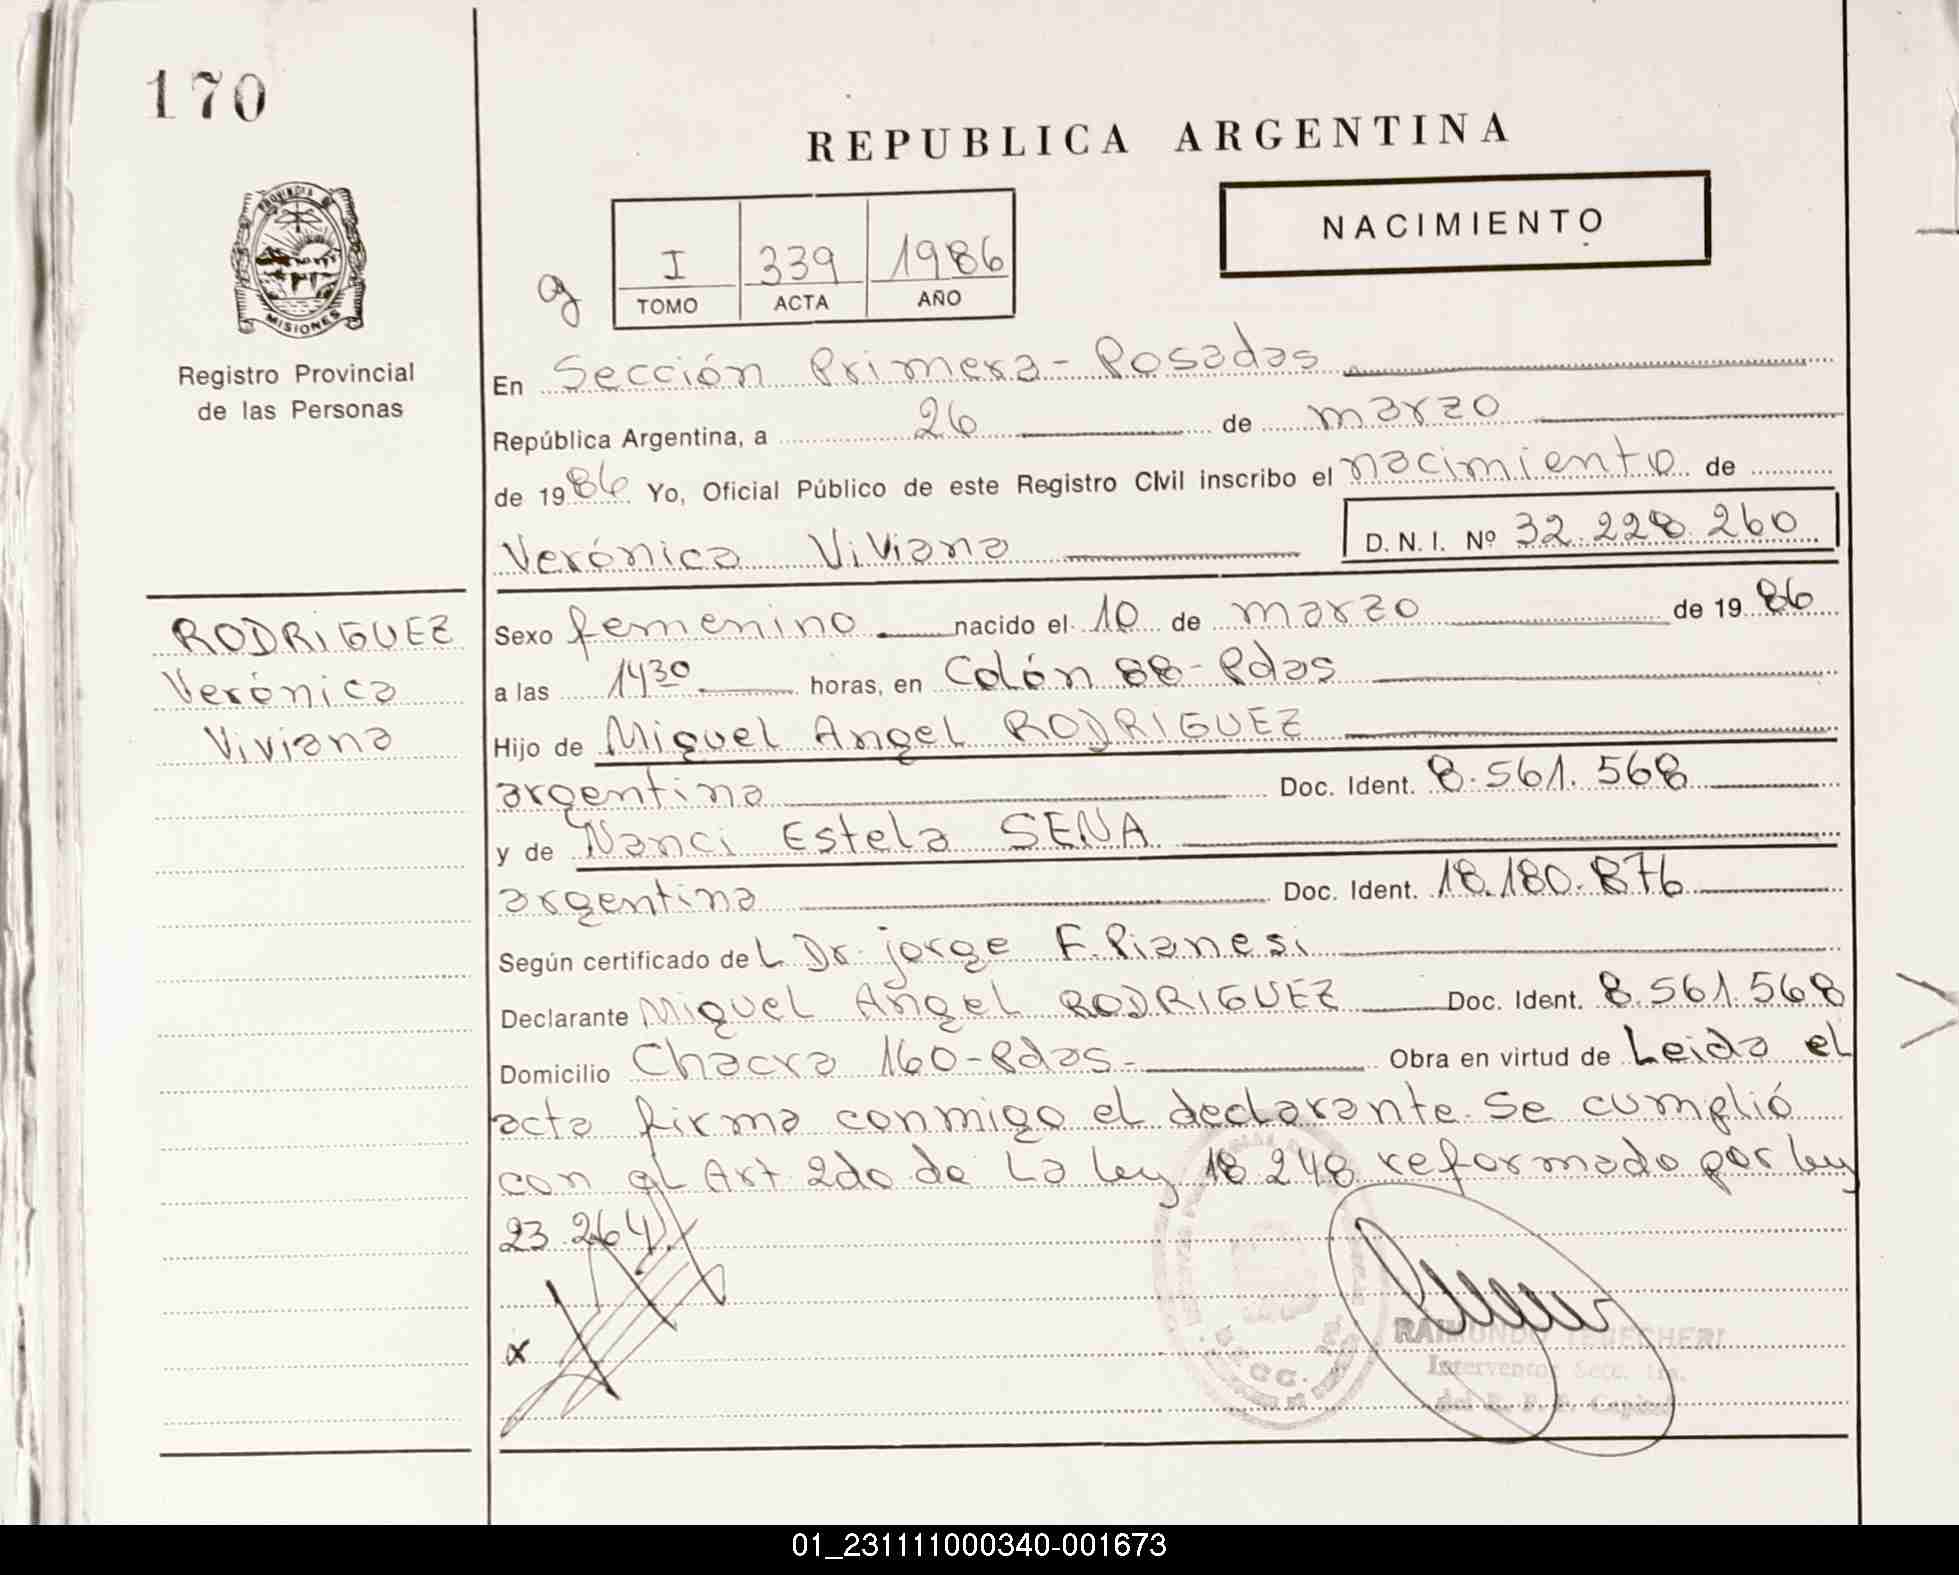 170
REPUBLICA ARGENTINA
NACIMIENTO
I 339 1986
TOMO ACTA AÑO
PROVINCIA DE
MISIONES
Registro Provincial
de las Personas
En Sección Primera - Posadas
República Argentina, a 26 de marzo
de 1986 Yo, Oficial Público de este Registro Civil inscribo el nacimiento de
Verónica Viviana D. N. I. Nº 32.228.260
RODRIGUEZ
Verónica
Viviana
Sexo femenino nacido el 10 de marzo de 1986
a las 1430 horas, en Colón 88 - Pdas
Hijo de Miguel Angel RODRIGUEZ
argentina Doc. Ident. 8.561.568
y de Nanci Estela SENA
argentina Doc. Ident. 18.180.876
Según certificado de L Dr. jorge F. Pianesi
Declarante Miguel Angel RODRIGUEZ Doc. Ident. 8.561.568
Domicilio Chacra 160 - Pdas - Obra en virtud de Leida el
acta firma conmigo el declarante. Se cumplió
con el Art 2do de La ley 18.248 reformado por ley
23.264
x
SECC.
RAIMUNDO
Interventor Secc. 1ra.
01_231111000340-001673